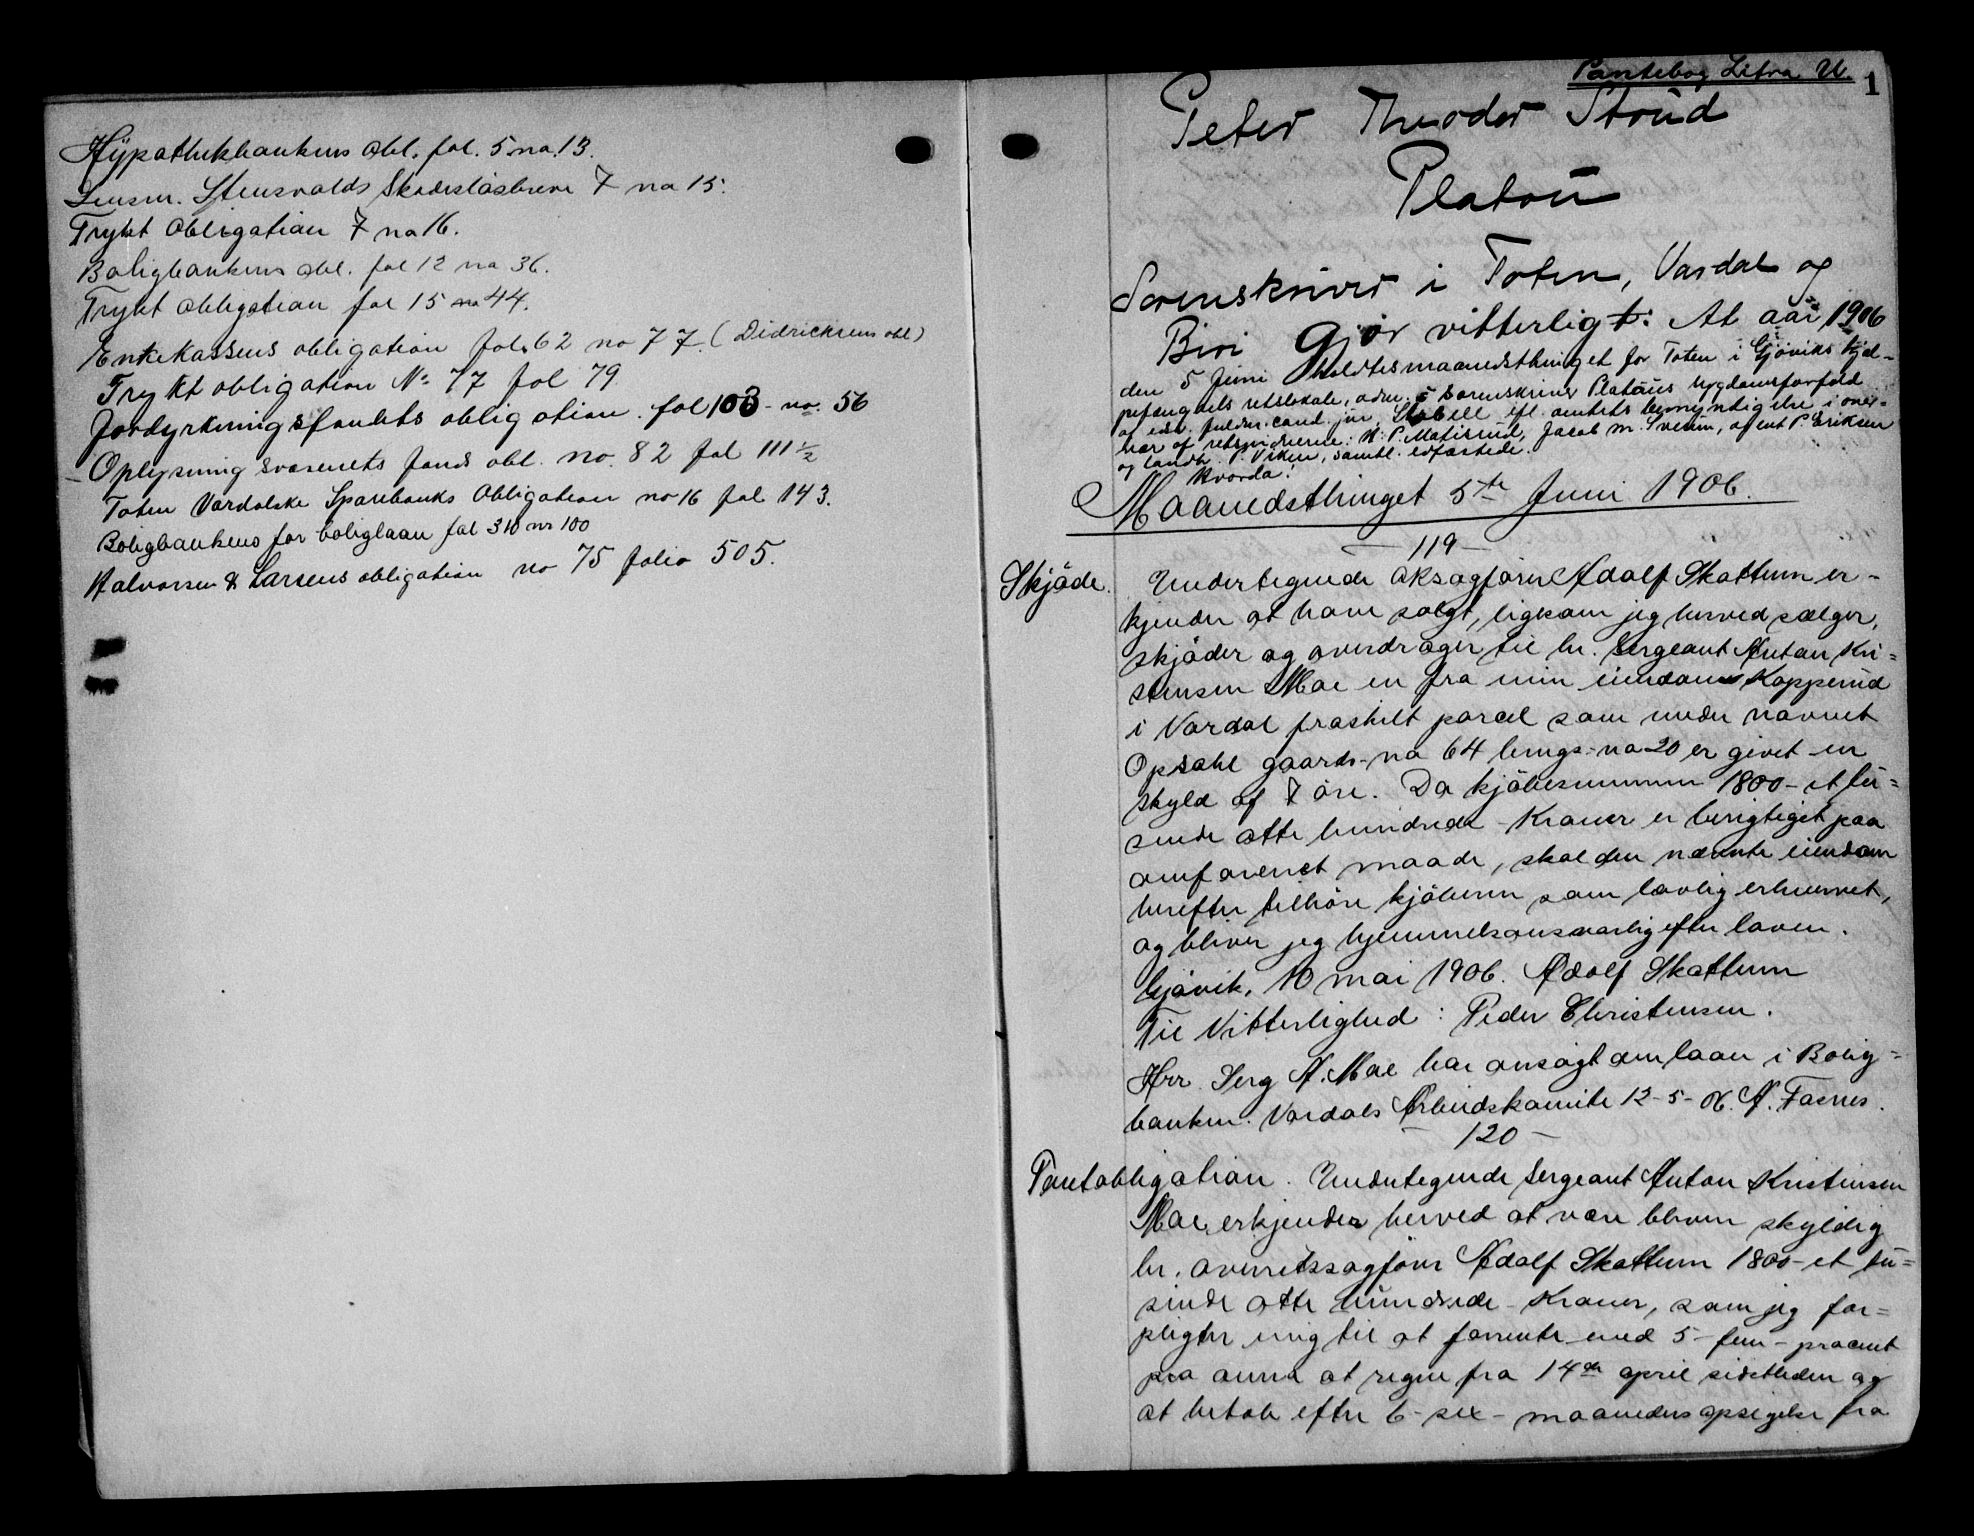 Hypothekbankens obl. fol. 5 no. 13.
Lensm. Stensvolds Skadesløsbreve 7 no 15.
Trykt Obligation 7 no 16.
Boligbankens obl. fol 12 no 36.
Trykt obligation fol 15 no 44.
Enkekassens obligation fol. 62 no 77. (Didrichsens obl)
Trykt obligation No 77 fol 79
Jordyrkningsfondets obligation. fol 103 - no. 56
Oplysningsvæsenets fonds obl. no. 82 fol 111 ½
Toten Vardalske Sparebanks Obligation no 16 fol 143.
Boligbankens for boliglaan fol 310 nr 100
Halvorsen & Larsens obligation no 75 folio 505.
Pantebog Litra U. 1
Peter Theodor Strüd
Platoü
Sorenskriver i Toten, Vardal og
Biri Gjør vitterligt: At aar 1906
den 5 Juni holdtes maanedsthinget for Toten i Gjøviks hjel-
pefængsels retslokale, adm. i Sorenskriver Platoüs sygdomsforfald
af edsv. fuldm. cand. jur. Stabell ifl. amtets bemyndigelse i over-
vær af retsvidnerne: H. P. Matisrud, Jacob M. Sveum, agent P. Eriksen
og landh. P. Viken, samtl. edfæstede.
Hvorda:
Maanedsthinget 5te Juni 1906.
- 119 -
Skjøde. Undertegnede oksagfører Adolf Skattum er-
kjender at have solgt, ligesom jeg herved sælger,
skjøder og overdrager til hr. Sergeant Anton Kri=
stensen Moe en fra min eiendom Kopperud
i Vardal fraskilt parcel som under navnet
Opsahl gaards-no 64 brugs-no 20 er givet en
skyld af 7 øre. Da kjøbesummen 1800 - et tu=
sende otte hundrede - Kroner er berigtiget paa
omforenet maade, skal den nævnte eiendom
herefter tilhøre kjøberen som lovlig erhvervet,
og bliver jeg hjemmelsansvarlig efter loven.
Gjøvik, 10 mai 1906. Adolf Skattum
Til Vitterlighed: Peder Christensen.
Hrr. Serg A. Moe har ansøgt om laan i Bolig=
banken. Vardals Arbeidskomite 12-5-06. A. Fasnes.
- 120 -
Pantobligation. Undertegnede Sergeant Anton Kristensen
Moe erkjender herved at være bleven skyldig
hr. overretssagfører Adolf Skattum 1800 - et tu=
sinde otte hundrede - Kroner, som jeg for=
pligter mig til at forrente med 5 - fem - procent
pro anno at regne fra 14de april sidstleden og
at betale efter 6 - sex - maaneders opsigelse fra